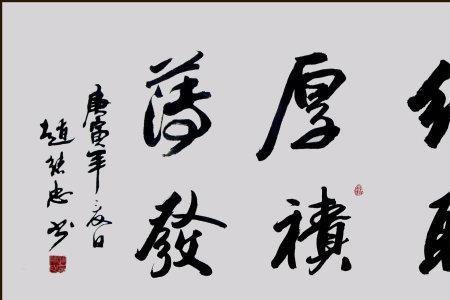 厚積
薄發
庚寅年夏日
趙忠书